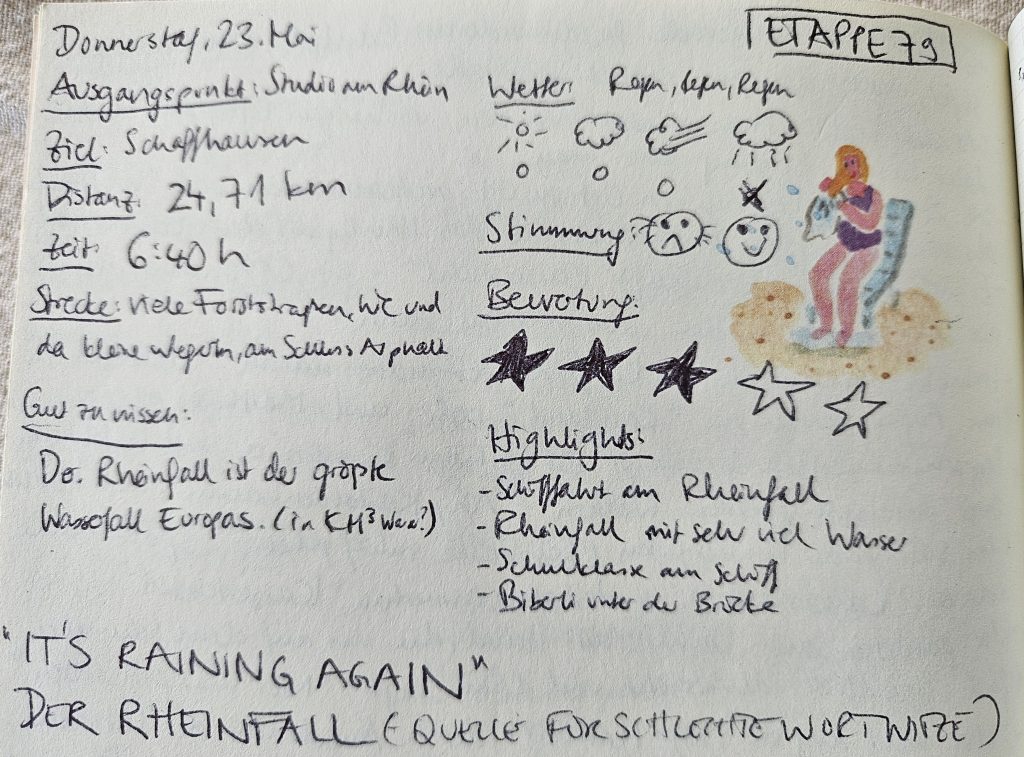 Donnerstag, 23. Mai
ETAPPE 79
Ausgangspunkt: Studio am Rhein
Ziel: Schaffhausen
Distanz: 24,71 km
Zeit: 6:40 h
Strecke: viele Forststraßen, hie und
da kleine Wegerln, am Schluss Asphalt
Gut zu wissen:
Der Rheinfall ist der größte
Wasserfall Europas. (in KH³
Wetter: Regen, Regen, Regen
Stimmung:
Bewertung:
Highlights:
- Schifffahrt am Rheinfall
- Rheinfall mit sehr viel Wasser
- Schulklasse am Schiff
- Biberli unter der Brücke
"IT'S RAINING AGAIN"
DER RHEINFALL (QUELLE FÜR SCHLECHTE WORTWITZE)